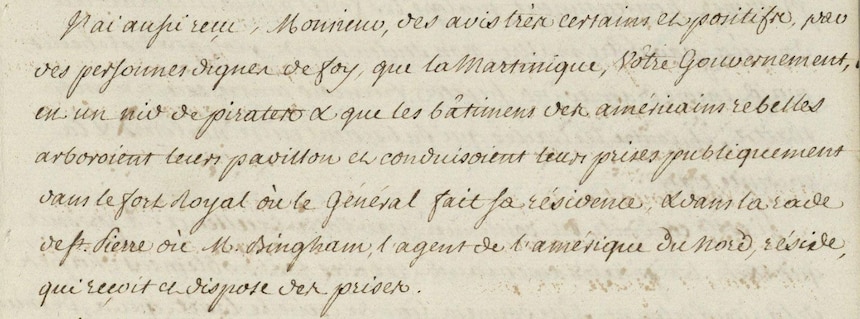 J'ai aussi reçu, Monsieur, des avis très certains et positifs, par
des personnes dignes de foy, que la Martinique, Votre Gouvernement,
est un nid de pirates & que les bâtimens des américains rebelles
arboroient leurs pavillon et conduisoient leurs prises publiquement
dans le fort Royal où le Général fait sa résidence, & dans la rade
de St. Pierre où M. Bingham, l'agent de l'amérique du Nord, réside,
qui reçoit et dispose des prises.